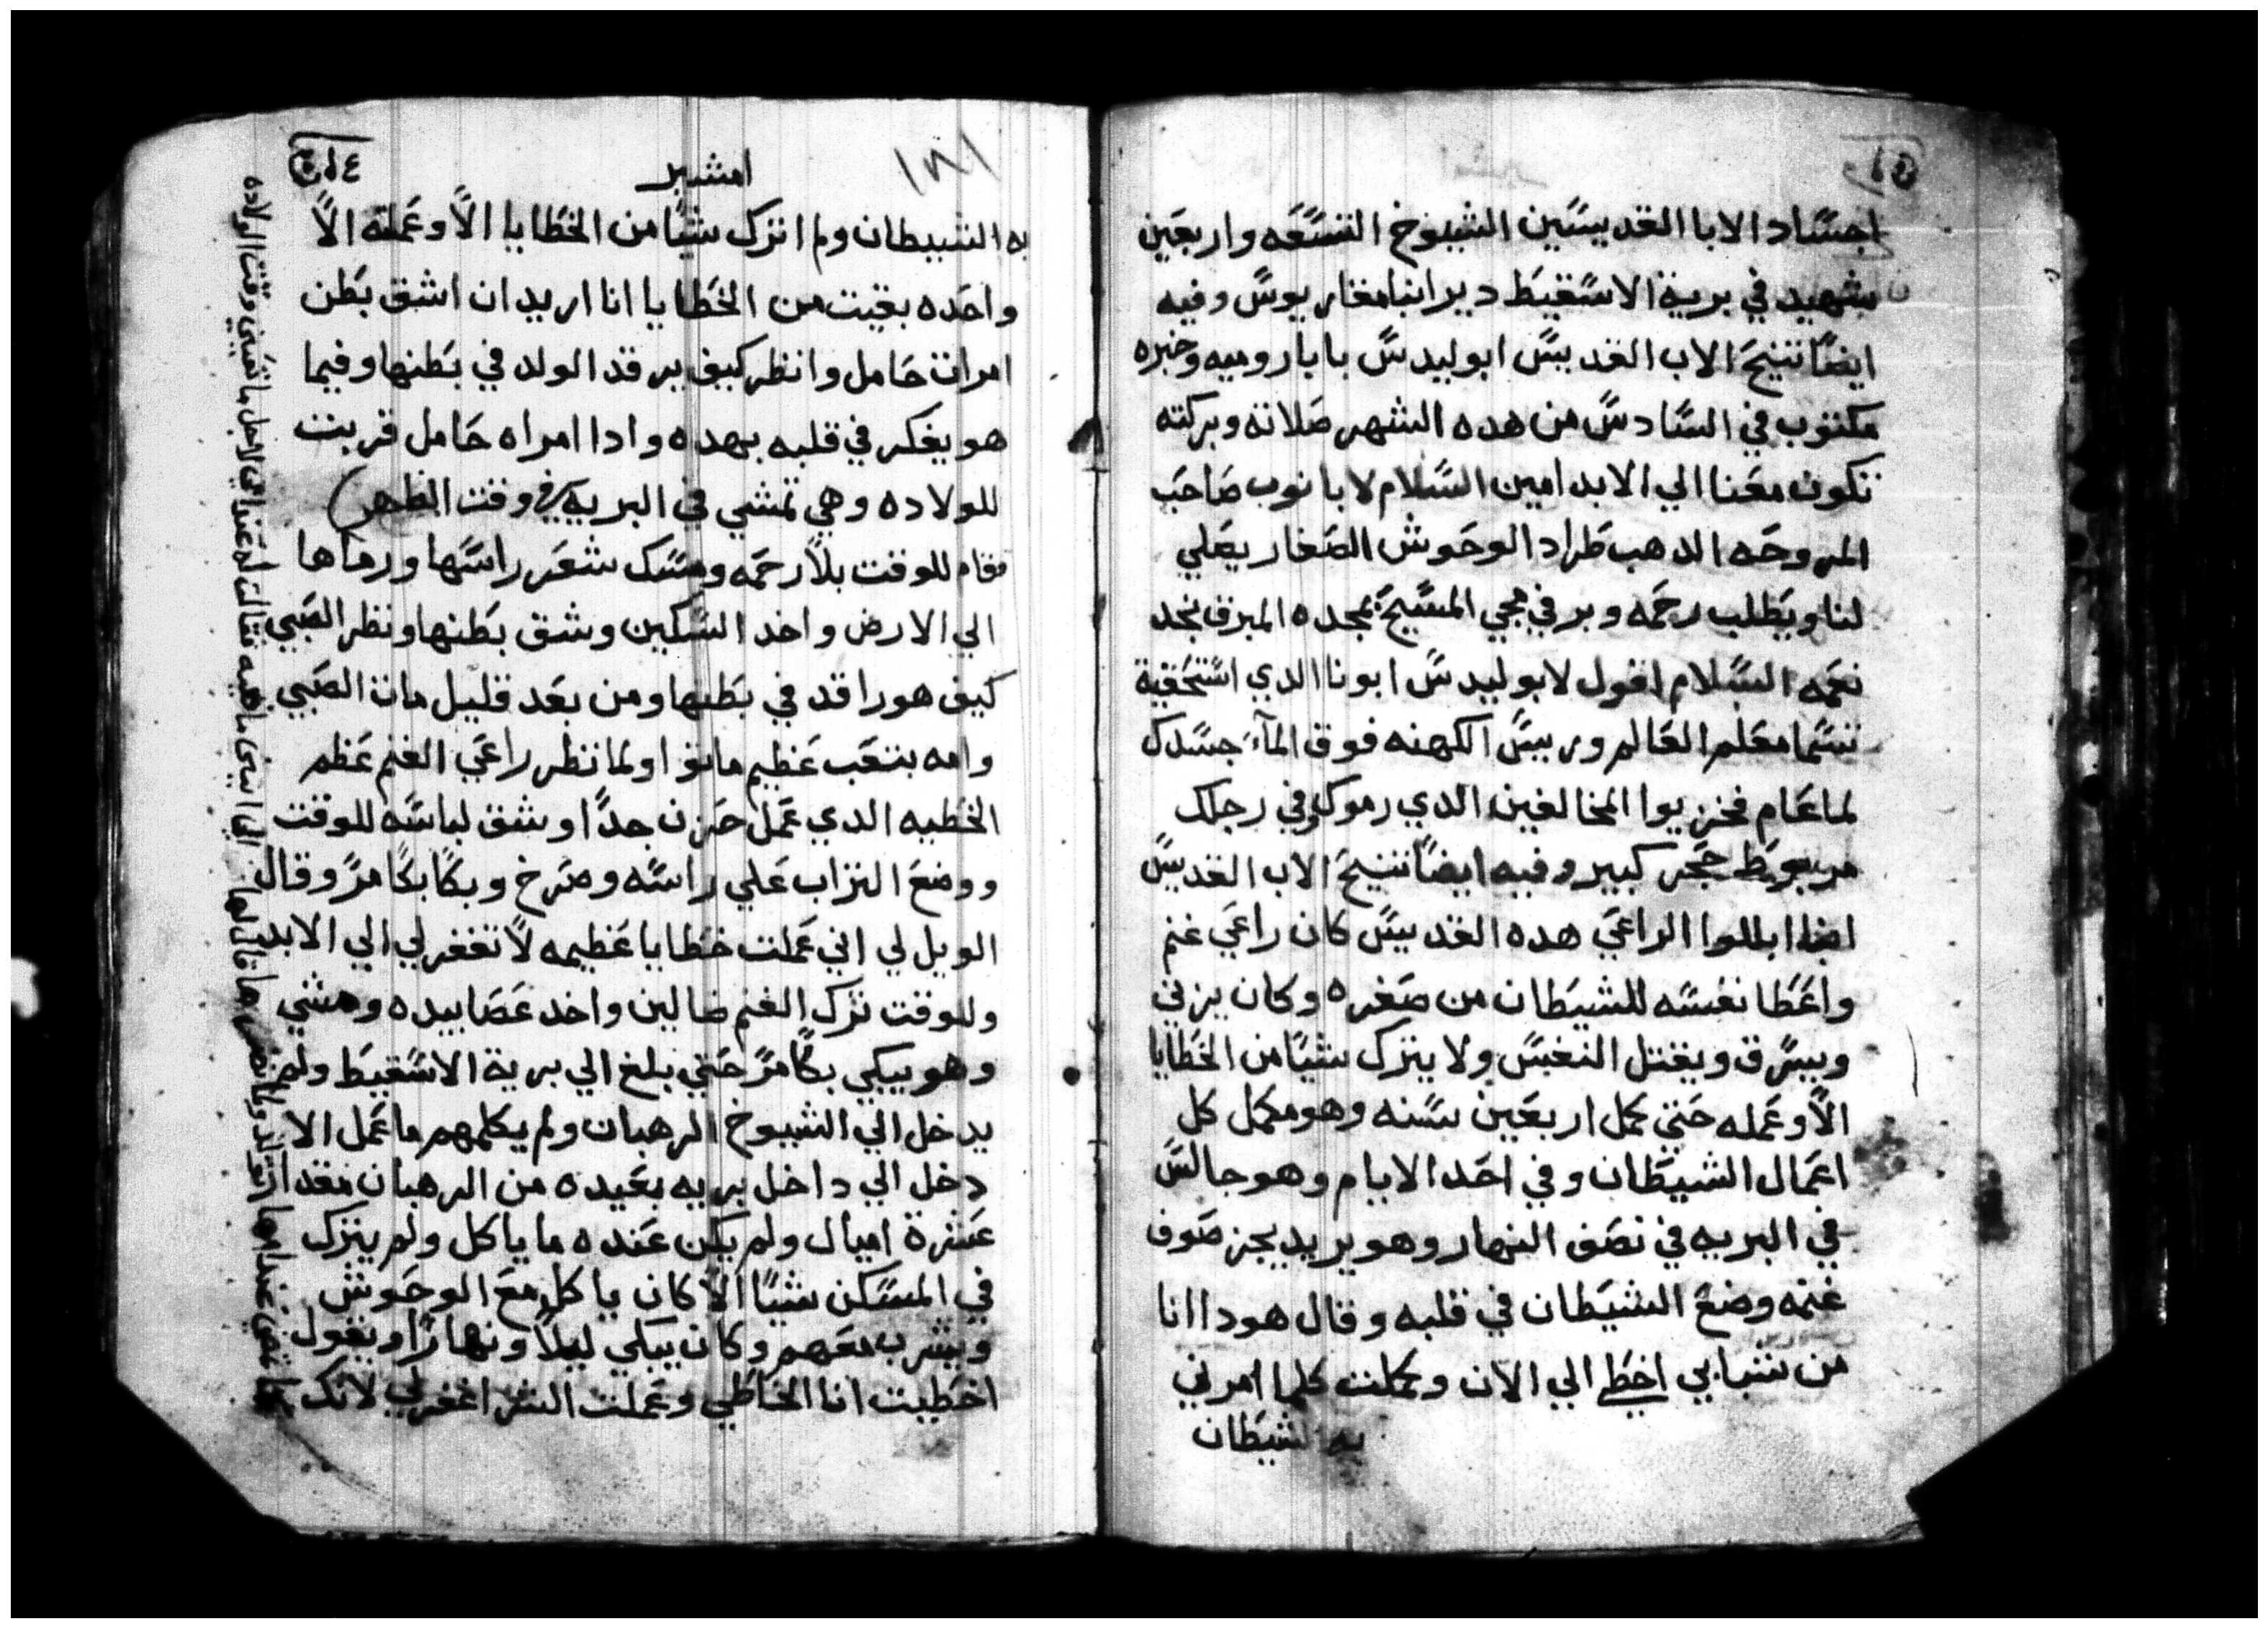 اجساد الابا القديسين الشيوخ التسعه واربعين
شهيد في برية الاسقيط دير انبا مغاريوس وفيه
ايضا تنيح الاب القديس ابوليدس بابا روميه وخبره
مكتوب في السادس من هده الشهر صلاته وبركته
تكون معنا الي الابد امين السلام لابانوب صاحب
المروحه الدهب طراد الوحوش الصغار يصلي
لنا ويطلب رحمه وبر في مجي المسيح بمجده المبرق نجد
نعمه السلام اقول لابوليدس ابونا الدي استحقية
تتسما معلم العالم وريس الكهنه فوق المآء جسدك
لما عام فخزيوا المخالفين الدي رموك وفي رجلك
مربوط حجر كبير وفيه ايضا تنيح الاب القديس
انبا ابللوا الراعي هده القديس كان راعي غنم
واعطا نفسه للشيطان من صغره وكان يزني
ويسرق ويقتل النفس ولا يترك شيا من الخطايا
الا وعمله حتي كمل اربعين سنه وهو مكمل كل
اعمال الشيطان وفي احد الايام وهو جالس
في البريه في نصف النهار وهو يريد يجز صوف
غنمه وضع الشيطان في قلبه وقال هودا انا
من شبابي اخطي الي الان وكملت كلما امرني
به الشيطان
امشير
١٨١
به الشيطان ولم اترك شيا من الخطايا الا وعملته الا
واحده بقيت من الخطايا انا اريد ان اشق بطن
امراة حامل وانظر كيف يرقد الولد في بطنها وفيما
هو يفكر في قلبه بهده وادا امراه حامل قربت
للولاده وهي تمشي في البريه في وقت الظهر
فقام للوقت بلا رحمه ومسك شعر راسها ورماها
الي الارض واخد السكين وشق بطنها ونظر الصبي
كيف هو راقد في بطنها ومن بعد قليل مات الصبي
وامه بتعب عظيم ماتوا ولما نظر راعي الغنم عظم
الخطيه الدي عمل حزن جدا وشق لباسه للوقت
ووضع التراب علي راسه وصرخ وبكا بكا مر وقال
الويل لي اني عملت خطايا عظيمه لا تغفر لي الي الابد
وللوقت ترك الغنم ضالين واخد عصا بيده ومشي
وهو يبكي بكا مر حتي بلغ الي برية الاسقيط ولم
يدخل الي الشيوخ الرهبان ولم يكلمهم ما عمل الا
دخل الي داخل بريه بعيده من الرهبان مقدار
عشرة اميال ولم يكن عنده ما ياكل ولم يترك
في المسكن شيا الا كان ياكل مع الوحوش
ويشرب معهم وكان يبكي ليلا ونهارا ويقول
اخطيت انا الخاطي وعملت الشر اغفر لي لانك